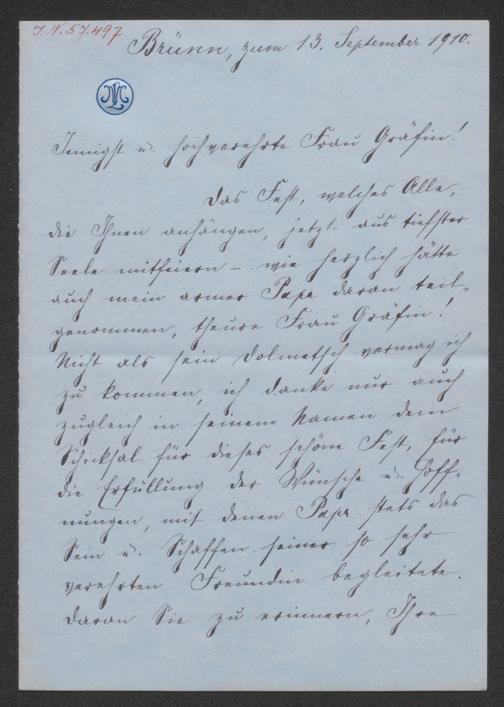 J.N. 57.497
Brünn, zum 13. September 1910.
Innigst u. hochverehrte Frau Gräfin!
Das Fest, welches Alle,
die Ihnen anhängen, jetzt aus tiefster
Seele mitfeiern – wie herzlich hätte
auch mein armer Papa daran teil-
genommen, theure Frau Gräfin!
Nicht als sein Dolmetsch vermag ich
zu kommen, ich danke nur auch
zugleich in seinem Namen dem
Schicksal für dieses schöne Fest, für
die Erfüllung der Wünsche u. Hoff-
nungen, mit denen Papa stets das
Sein u. Schaffen seiner so sehr
verehrten Freundin begleitete.
Daran Sie zu erinnern, Ihre